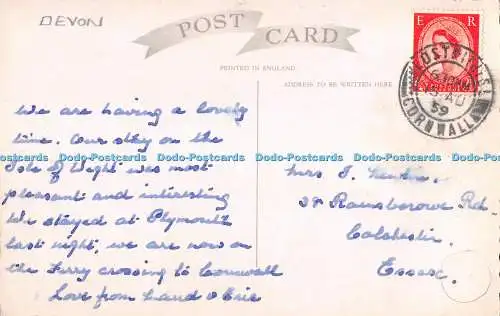 DEVON
POST CARD
E R
PRINTED IN ENGLAND
ADDRESS TO BE WRITTEN HERE
LOSTWITHIEL
AU
59
CORNWALL
We are having a lovely
time. Our stay on the
Isle of Wight was most
pleasant and interesting
We stayed at Plymouth
last night, we are now on
the Ferry crossing to Cornwall
Love from & Eric
Mrs
Rainsborowe Rd.
Colchester.
Essex.
Dodo-Postcards Dodo-Postcards Dodo-Postcards Dodo-Postcards Dodo-Postcards Dodo-Postcards